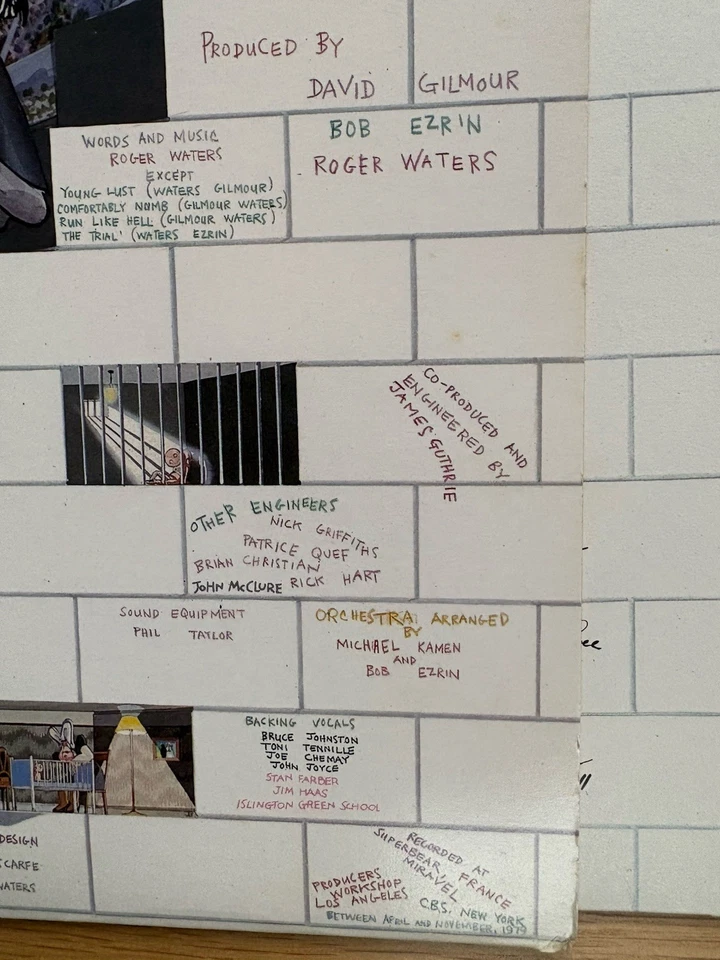 PRODUCED BY
DAVID GILMOUR
BOB EZRIN
ROGER WATERS
WORDS AND MUSIC
ROGER WATERS
EXCEPT
YOUNG LUST (WATERS GILMOUR)
COMFORTABLY NUMB (GILMOUR WATERS)
RUN LIKE HELL (GILMOUR WATERS)
THE TRIAL' (WATERS EZRIN)
CO-PRODUCED AND
ENGINEERED BY
JAMES GUTHRIE
OTHER ENGINEERS
NICK GRIFFITHS
PATRICE QUEF
BRIAN CHRISTIAN
JOHN McCLURE RICK HART
SOUND EQUIPMENT
PHIL TAYLOR
ORCHESTRA ARRANGED
BY
MICHAEL KAMEN
AND
BOB EZRIN
BACKING VOCALS
BRUCE JOHNSTON
TONI TENNILLE
JOE CHEMAY
JOHN JOYCE
STAN FARBER
JIM HAAS
ISLINGTON GREEN SCHOOL
DESIGN
CARFE
WATERS
RECORDED AT
SUPERBEAR, FRANCE
MIRAVEL
PRODUCERS
WORKSHOP
LOS ANGELES
C.B.S. NEW YORK
BETWEEN APRIL AND NOVEMBER, 1979